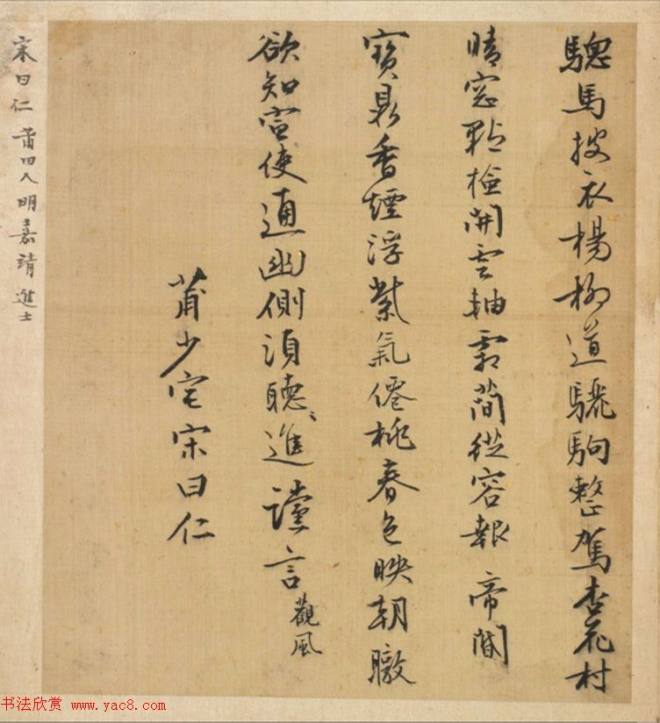 驄馬披衣楊柳道驪駒整駕杏花村
晴窓點檢開雲抽霜簡從容報帝閽
寶鼎香煙浮紫氣僊桃春色映朝暾
欲知宣使通幽側須聽進讜言
觀風
莆少宅宋曰仁
宋曰仁 莆田人 明嘉靖進士
书法欣赏 www.yac8.com